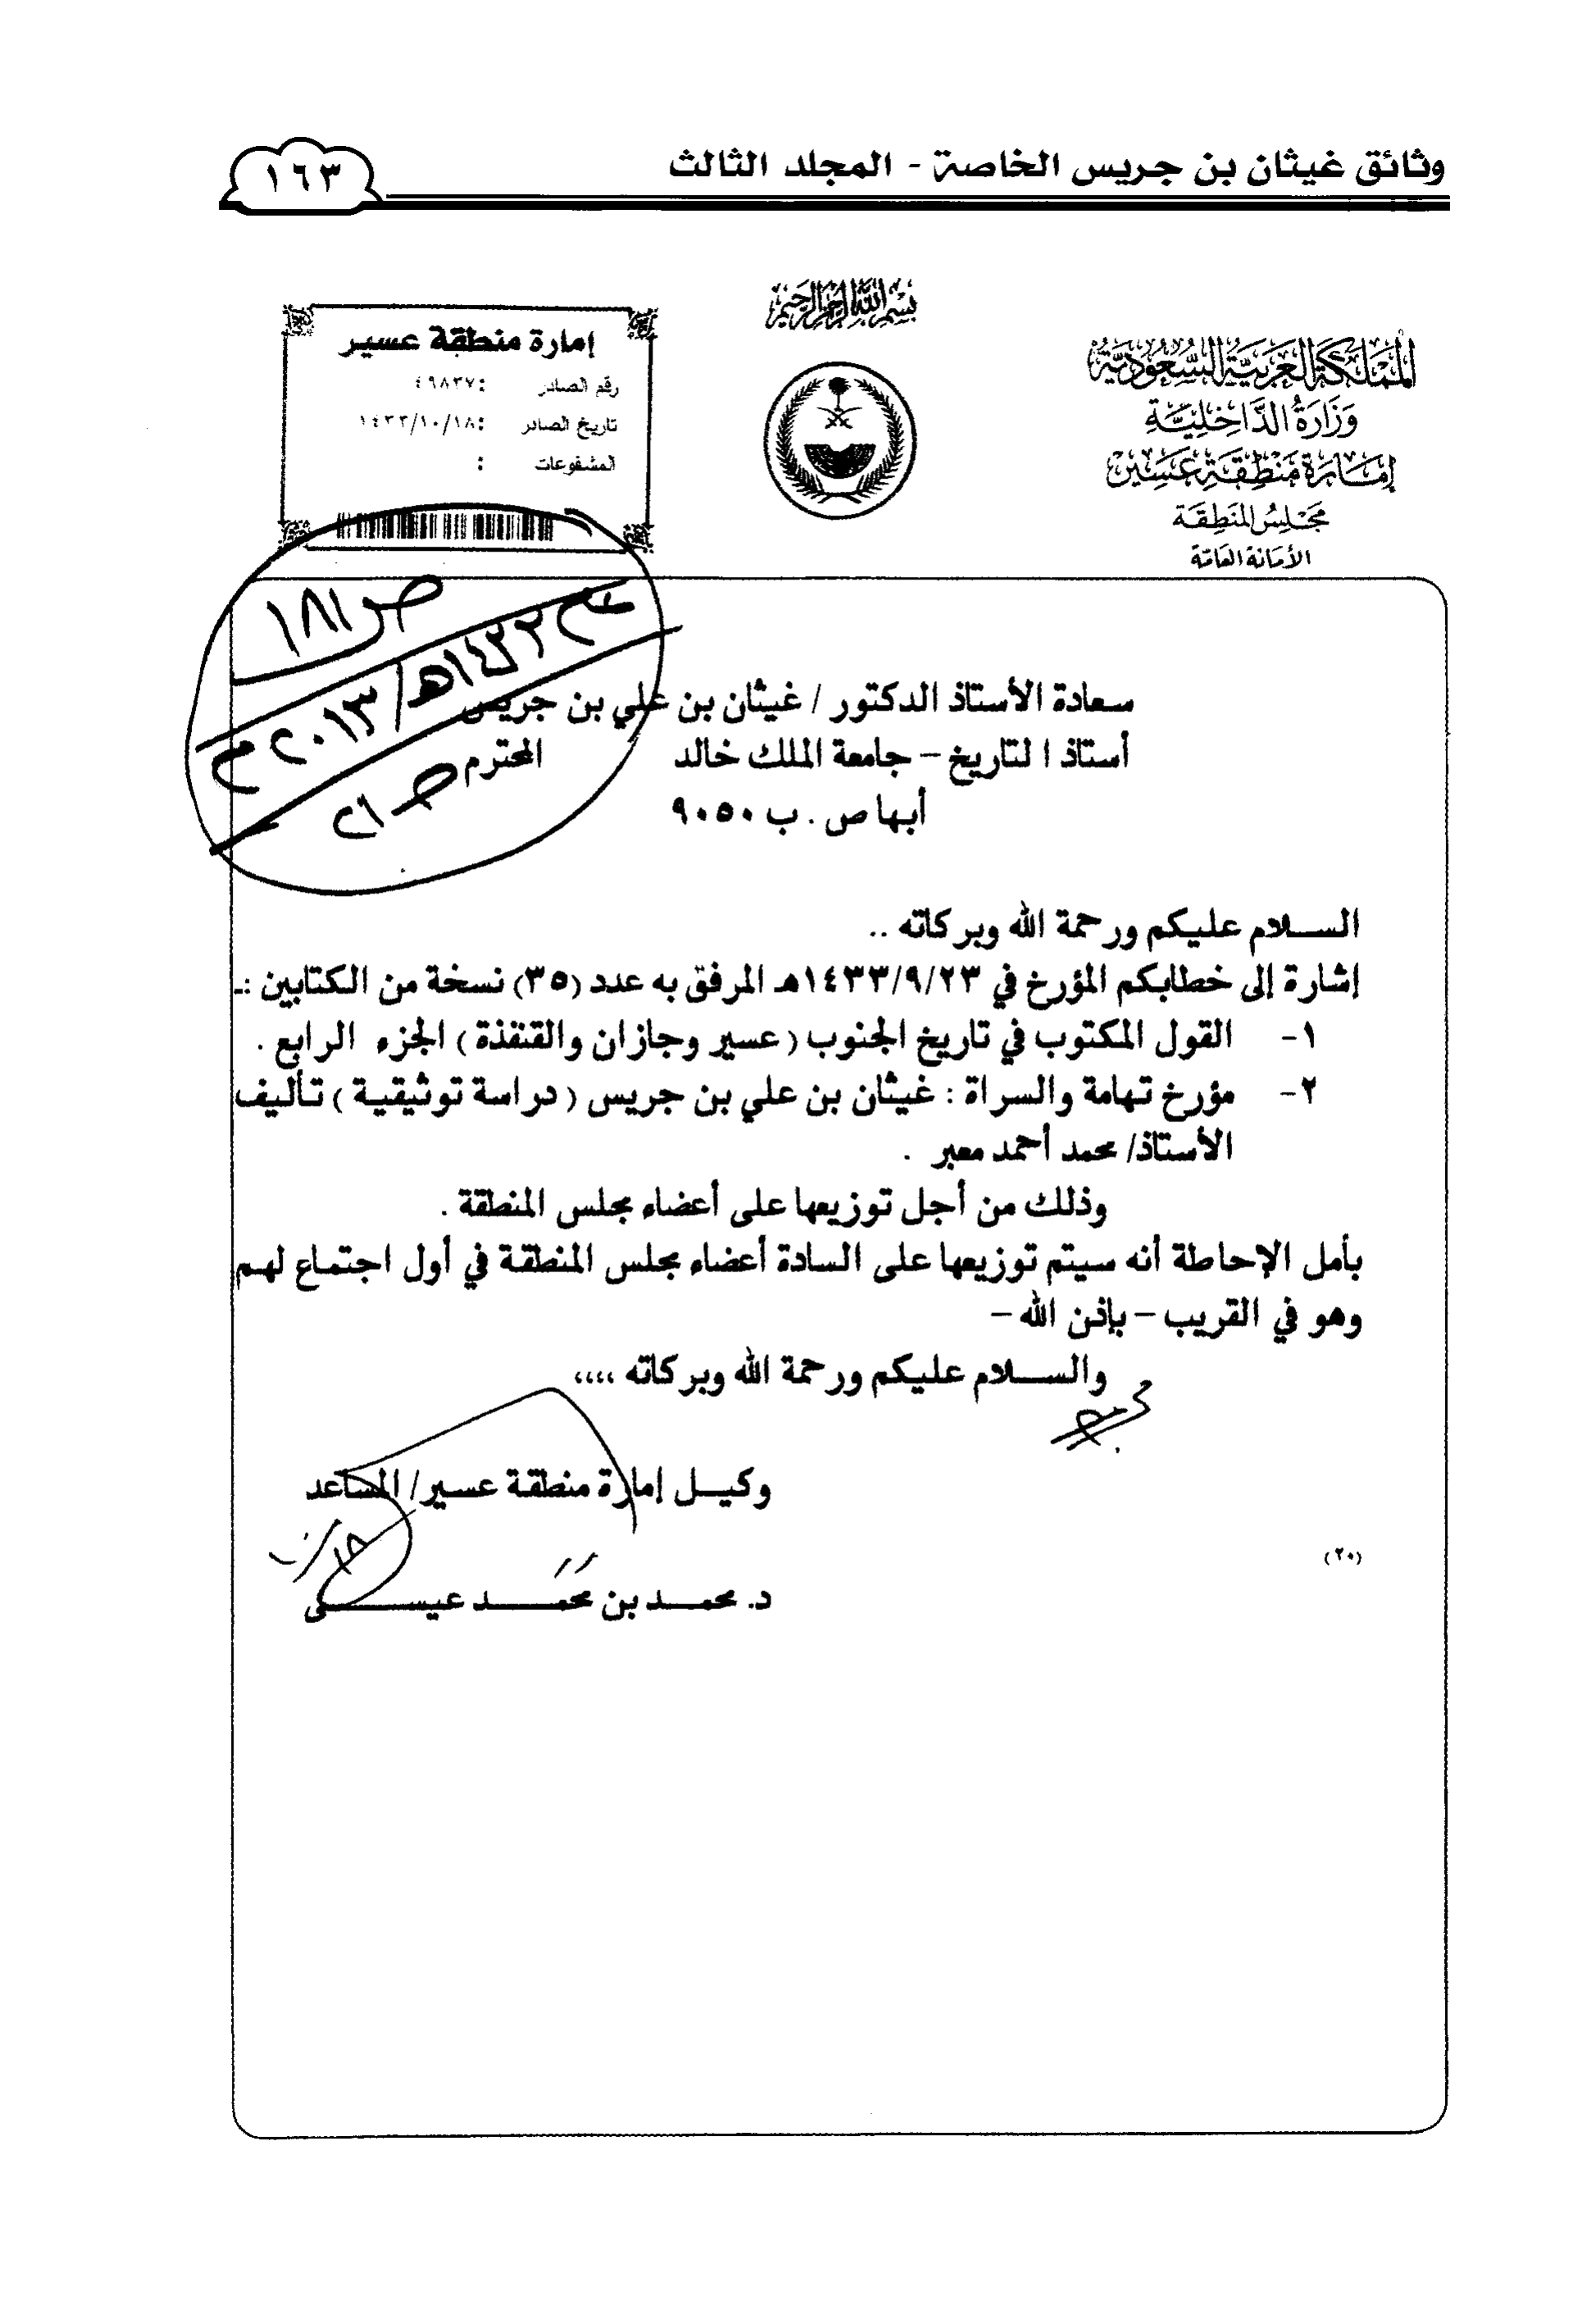 وثائق غيثان بن جريس الخاصة - المجلد الثالث
١٦٣
بسم الله الرحمن الرحيم
المملكة العربية السعودية
وزارة الداخلية
إمارة منطقة عسير
مجلس المنطقة
الأمانة العامة
إمارة منطقة عسير
رقم الصادر : ٤٩٨٣٧
تاريخ الصادر : ١٤٣٣/١٠/١٨
المشفوعات :
ص١٨١
١٤٣٣هـ/٢٠١٣م
سعادة الأستاذ الدكتور / غيثان بن علي بن جريس
أستاذ التاريخ – جامعة الملك خالد المحترم
أبها ص . ب ٩٠٥٠
السلام عليكم ورحمة الله وبركاته ..
إشارة إلى خطابكم المؤرخ في ١٤٣٣/٩/٢٣هـ المرفق به عدد (٣٥) نسخة من الكتابين :ـ
١- القول المكتوب في تاريخ الجنوب ( عسير وجازان والقنفذة ) الجزء الرابع .
٢- مؤرخ تهامة والسراة : غيثان بن علي بن جريس ( دراسة توثيقية ) تأليف
الأستاذ/ محمد أحمد معبر .
وذلك من أجل توزيعها على أعضاء مجلس المنطقة .
بأمل الإحاطة أنه سيتم توزيعها على السادة أعضاء مجلس المنطقة في أول اجتماع لهم
وهو في القريب – بإذن الله –
والسلام عليكم ورحمة الله وبركاته ،،،،
وكيل إمارة منطقة عسير/ المساعد
١٨/١٠
(٢٠)
د. محمد بن محمد عيسى